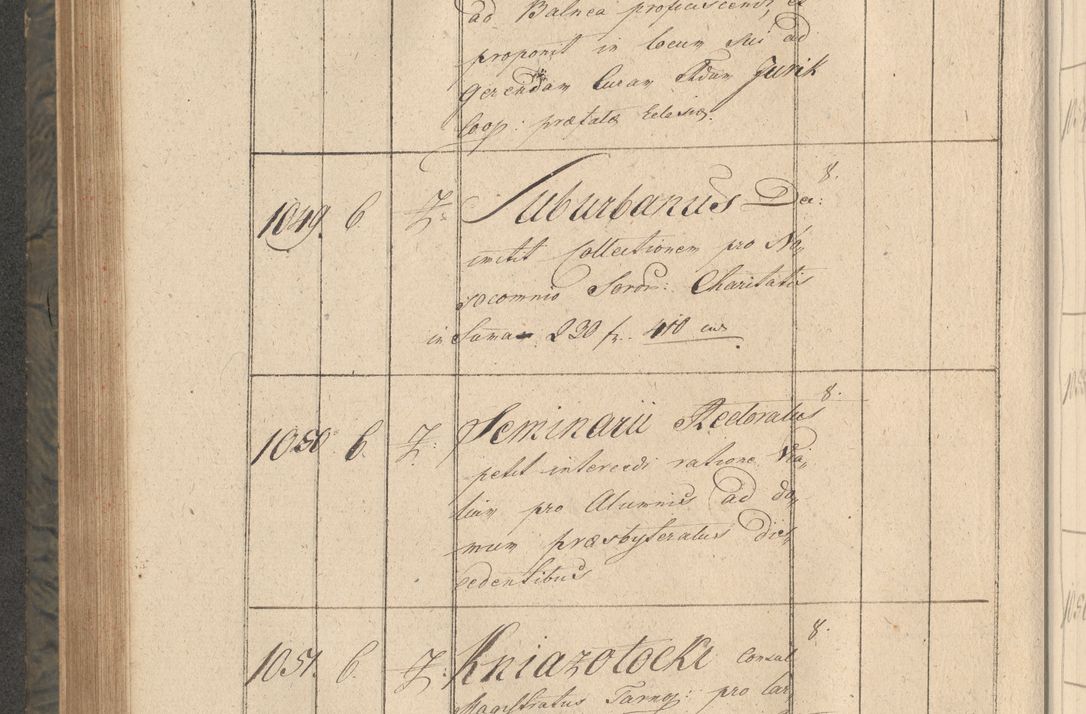 ad Balnea proficiscendi, et
proponit in locum sui ad
Gerendam Curam Adum Jurik
Coop: præfatæ Eclesiæ.
8.
1049. 6. Z: Suburbanus Dec:
imitit Collectionem pro No,
socomnio Soror: Charitatis
in Suma 230 fr. 40
8.
1050 6. Z: Seminarii Rectoratus
petit intercedi ratione Via,
ticum pro Alumnis ad do,
mum præsbyteratus dis,
cedentibus
8.
1051. 6. Z: Kniazotocki Consul
Magistratus Tarnoj: pro Car,